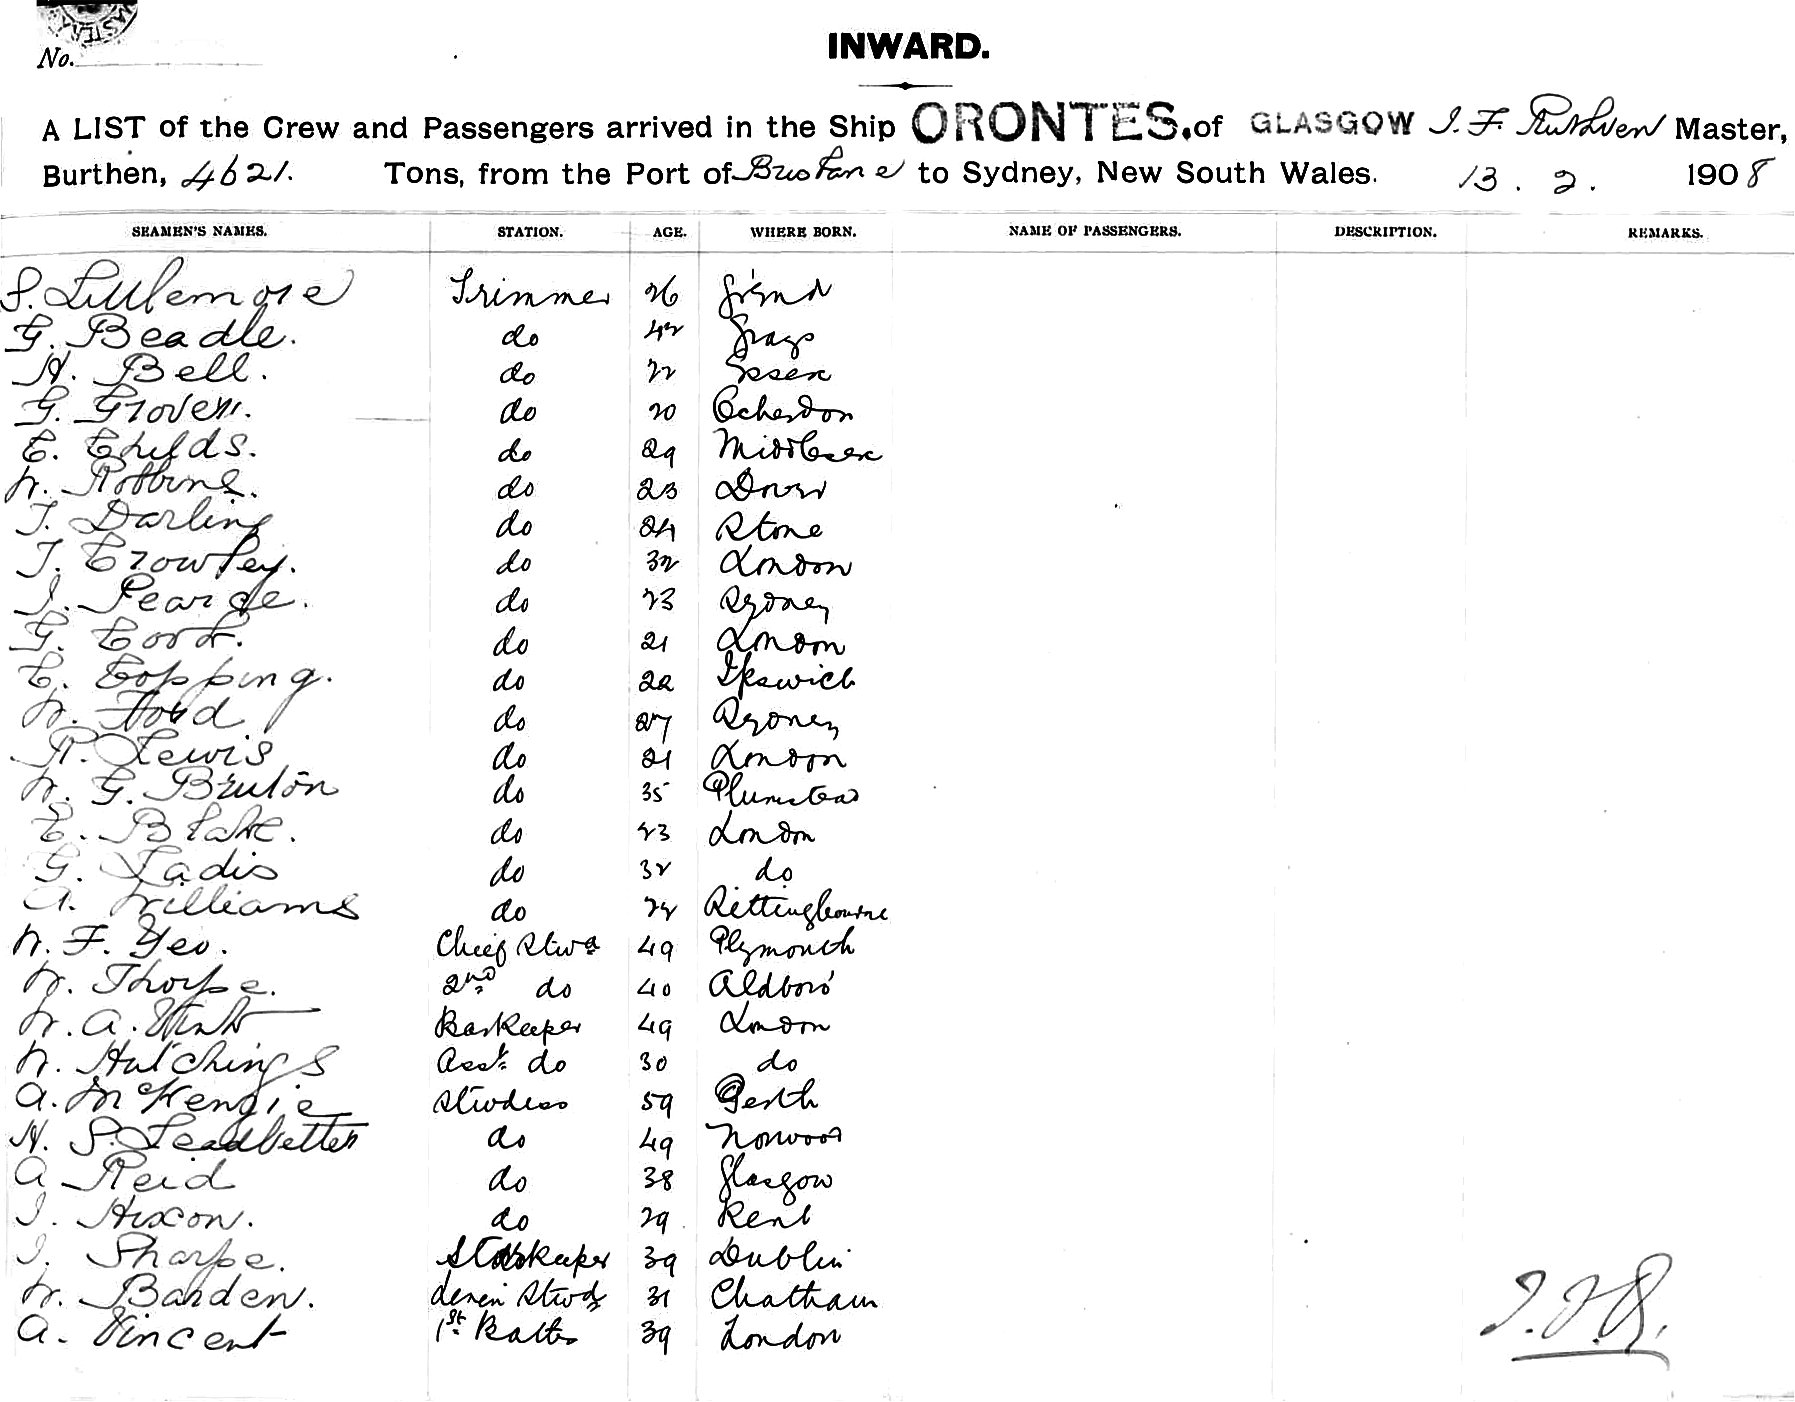 No.
INWARD.
A LIST of the Crew and Passengers arrived in the Ship ORONTES. of GLASGOW J. F. Ruthven Master,
Burthen, 4621. Tons, from the Port of Brisbane to Sydney, New South Wales. 13. 2. 1908
SEAMEN'S NAMES. STATION. AGE. WHERE BORN. NAME OF PASSENGERS. DESCRIPTION. REMARKS.
S. Littlemore Trimmer 26
G. Beadle. do 42 Grays
H. Bell. do 22 Essex
G. Groven. do 20 Ockendon
E. Childs. do 29 Middlesex
W. Robbins. do 23 Dover
T. Darling do 24 Stone
T. Crowley. do 32 London
J. Pearce. do 23 Sydney
G. Cork. do 21 London
E. Copping. do 22 Ipswich
W. Ford do 27 Sydney
R. Lewis do 21 London
W. G. Bruton do 35 Plumstead
E. Blake. do 23 London
G. Ladis do 32 do
A. Williams do 22 Sittingbourne
W. F. Yeo. Chief Stwd 49 Plymouth
W. Thorpe. 2nd do 40 Aldboro'
W. A. Barkeeper 49 London
W. Hutchings Asst. do 30 do
A. McKenzie Stwdess 59 Perth
H. S. Leadbetter do 49 Norwood
A Reid do 38 Glasgow
J. Hixon. do 29 Kent
J. Sharpe. Storekeeper 39 Dublin
W. Barden. Linen Stwd 31 Chatham
A. Vincent 1st. 39 London
J.F.R.